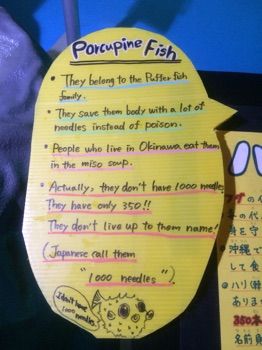 Porcupine Fish
• They belong to the Puffer fish
family.
• They save them body with a lot of
needles instead of poison.
• People who live in Okinawa eat them
in the miso soup.
• Actually, they don't have 1000 needles.
They have only 350!!
They don't live up to them name!
(Japanese call them
"1000 needles".)
I don't have
1000 needles.
ハ
沖縄で
して食
ハリ(針
ありま
350本
名前